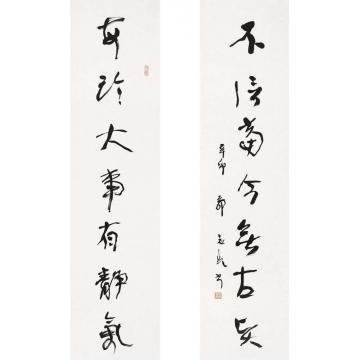 不信當今無古賢
辛卯
每臨大事有靜氣